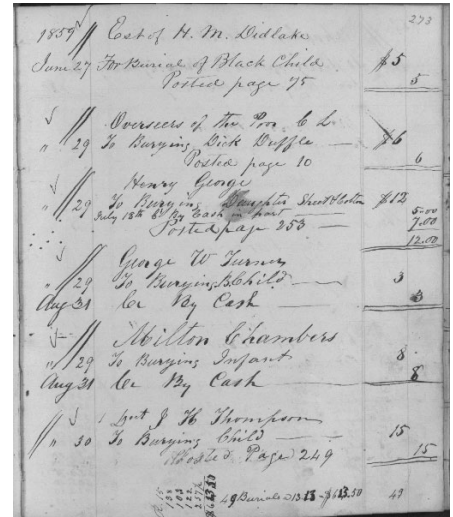 273
1859 Est of H. M. Didlake
June 27 For Burial of Black Child $5
Posted page 75 5
Overseers of the Poor
" 29 To Burying Dick Duffle — $6
Posted page 10 6
Henry George
" 29 To Burying Daughter $12
July 18th By Cash in part — 5.00
Posted page 253 — 7.00
12.00
George W Turner
" 29 To Burying B. Child — 3
Aug 31 Cr By Cash — 3
Milton Chambers
" 29 To Burying Infant 8
Aug 31 Cr By Cash — 8
J H Thompson
" 30 To Burying Child — 15
Posted Page 249 15
49 Burials $613.50 49